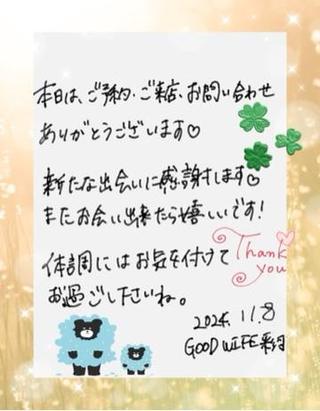 本日は、ご予約・ご来店、お問い合わせ
ありがとうございます♡
新たな出会いに感謝します♡
またお会い出来たら嬉しいです！
体調にはお気を付けて
お過ごしくださいね。
Thank
you
2024. 11. 8
GOOD WIFE